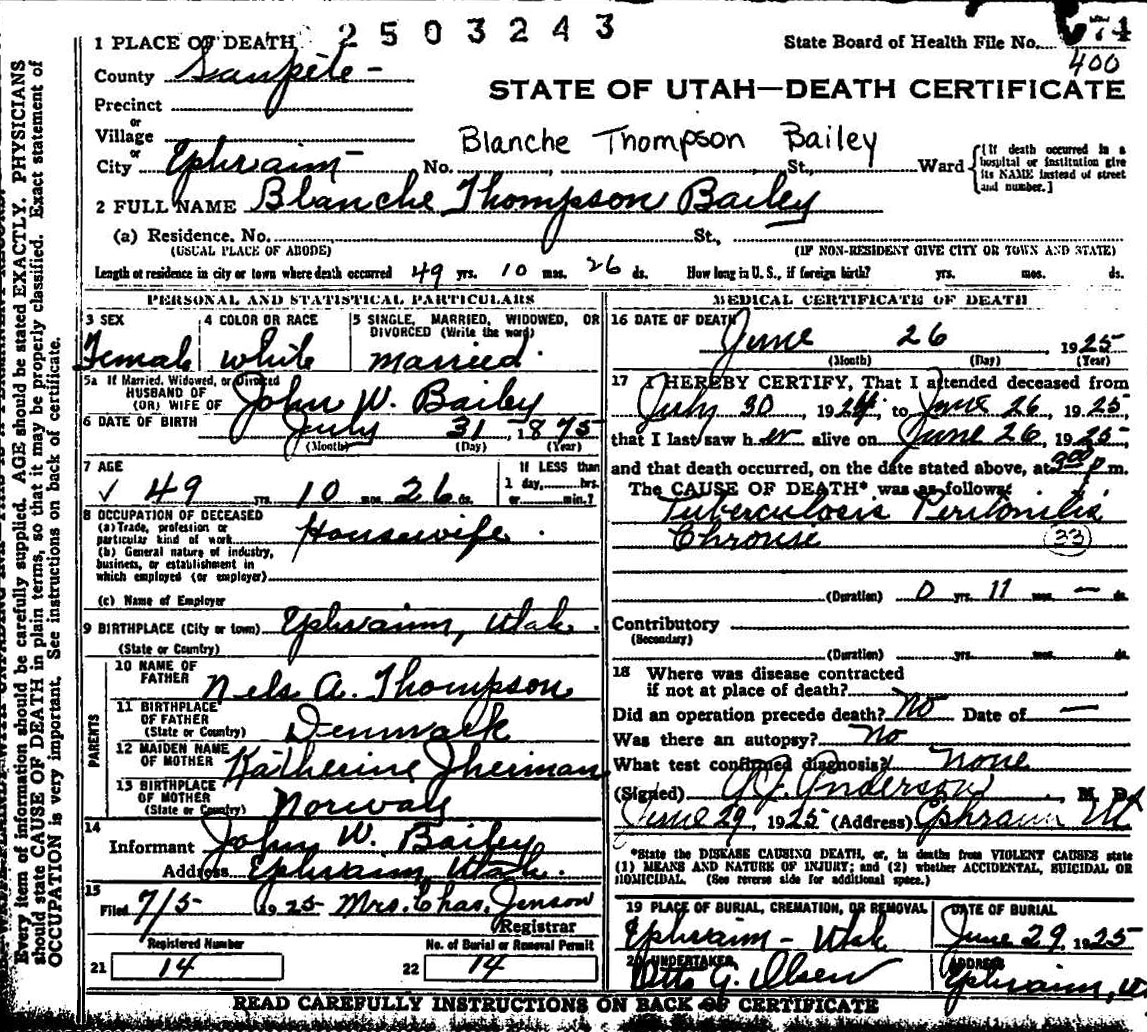 2503243
1 PLACE OF DEATH
State Board of Health File No. 74
400
County Sanpete -
STATE OF UTAH—DEATH CERTIFICATE
Precinct
or
Village
Blanche Thompson Bailey
or
City Ephraim - No. , St., Ward
[If death occurred in a hospital or institution give its NAME instead of street and number.]
2 FULL NAME Blanche Thompson Bailey
(a) Residence. No. St.,
(USUAL PLACE OF ABODE) (IF NON-RESIDENT GIVE CITY OR TOWN AND STATE)
Length of residence in city or town where death occurred 49 yrs. 10 mos. 26 ds. How long in U. S., if foreign birth? yrs. mos. ds.
PERSONAL AND STATISTICAL PARTICULARS
3 SEX
Female
4 COLOR OR RACE
white
5 SINGLE, MARRIED, WIDOWED, OR DIVORCED (Write the word)
married.
5a If Married, Widowed, or Divorced
HUSBAND OF
(OR) WIFE OF John W. Bailey
6 DATE OF BIRTH July 31, 1875
(Month) (Day) (Year)
7 AGE
✓ 49 yrs. 10 mos. 26 ds.
If LESS than
1 day, hrs.
or min.?
8 OCCUPATION OF DECEASED
(a) Trade, profession or
particular kind of work Housewife.
(b) General nature of industry,
business, or establishment in
which employed (or employer)
(c) Name of Employer
9 BIRTHPLACE (City or town) Ephraim, Utah.
(State or Country)
PARENTS
10 NAME OF
FATHER Nels A. Thompson
11 BIRTHPLACE
OF FATHER
(State or Country) Denmark
12 MAIDEN NAME
OF MOTHER Katherine Jherman
13 BIRTHPLACE
OF MOTHER
(State or Country) Norway
14
Informant John W. Bailey
Address Ephraim, Utah.
15
Filed 7/5 1925 Mrs. Chas. Jenson
Registrar
Registered Number
21 14
No. of Burial or Removal Permit
22 14
MEDICAL CERTIFICATE OF DEATH
16 DATE OF DEATH June 26 1925
(Month) (Day) (Year)
17 I HEREBY CERTIFY, That I attended deceased from
July 30, 1924, to June 26, 1925,
that I last saw her alive on June 26, 1925
and that death occurred, on the date stated above, at 9:00 p m.
The CAUSE OF DEATH* was as follows:
Tuberculosis Peritonitis
Chronic
(33)
(Duration) 0 yrs. 11 mos. — ds.
Contributory
(Secondary)
(Duration) yrs. mos. ds.
18 Where was disease contracted
if not at place of death?
Did an operation precede death? No Date of —
Was there an autopsy? No
What test confirmed diagnosis? None
(Signed) Anderson, M. D.
June 29, 1925 (Address) Ephraim Ut
*State the DISEASE CAUSING DEATH, or, in deaths from VIOLENT CAUSES state
(1) MEANS AND NATURE OF INJURY; and (2) whether ACCIDENTAL, SUICIDAL OR
HOMICIDAL. (See reverse side for additional space.)
19 PLACE OF BURIAL, CREMATION, OR REMOVAL
Ephraim - Utah
DATE OF BURIAL
June 29, 1925
20 UNDERTAKER
Otto G. Olsen
ADDRESS
Ephraim, U
READ CAREFULLY INSTRUCTIONS ON BACK OF CERTIFICATE
Every item of information should be carefully supplied. AGE should be stated EXACTLY. PHYSICIANS
should state CAUSE OF DEATH in plain terms, so that it may be properly classified. Exact statement of
OCCUPATION is very important. See instructions on back of certificate.